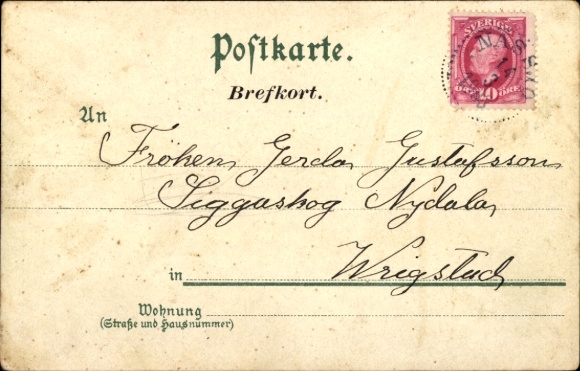 SVERIGE
NÄS
10
ÖRE ÖRE
Postkarte.
Brefkort.
An
Fröken Gerda Gustafsson
Siggaskog Nydala
in Wrigstad
Wohnung
(Straße und Hausnummer)